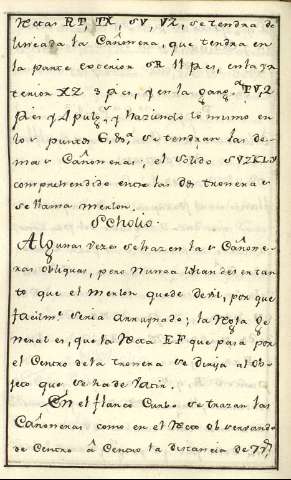 Rectas RT, TX, SV, VZ, se tendra de
lineada la Cañonera, que tendra en
la parte exterior SR 11 pies, en la yn
terior XZ 3 pies, y en la garg.ta TV, 2
pies y 4 pulg.s y haziendo lo mismo en
los puntos G, &.a se tendran las de-
mas Cañoneras; el solido SVZKLM
comprehendido entre las dos troneras
se llama merlon.
Scholio.
Algunas vezes se hazen las Cañone-
ras obliquas, pero nunca tan
to que el merlon quede devil, por que
facilm.te seria arruynado; la Regla ge
neral es, que la Recta EF que pasa por
el Centro de la tronera se dirija al Ob-
jeto que se ha de vatir.
En el flanco Curbo se trazan las
Cañoneras como en el Recto observando
de Centro â Centro la distancia de